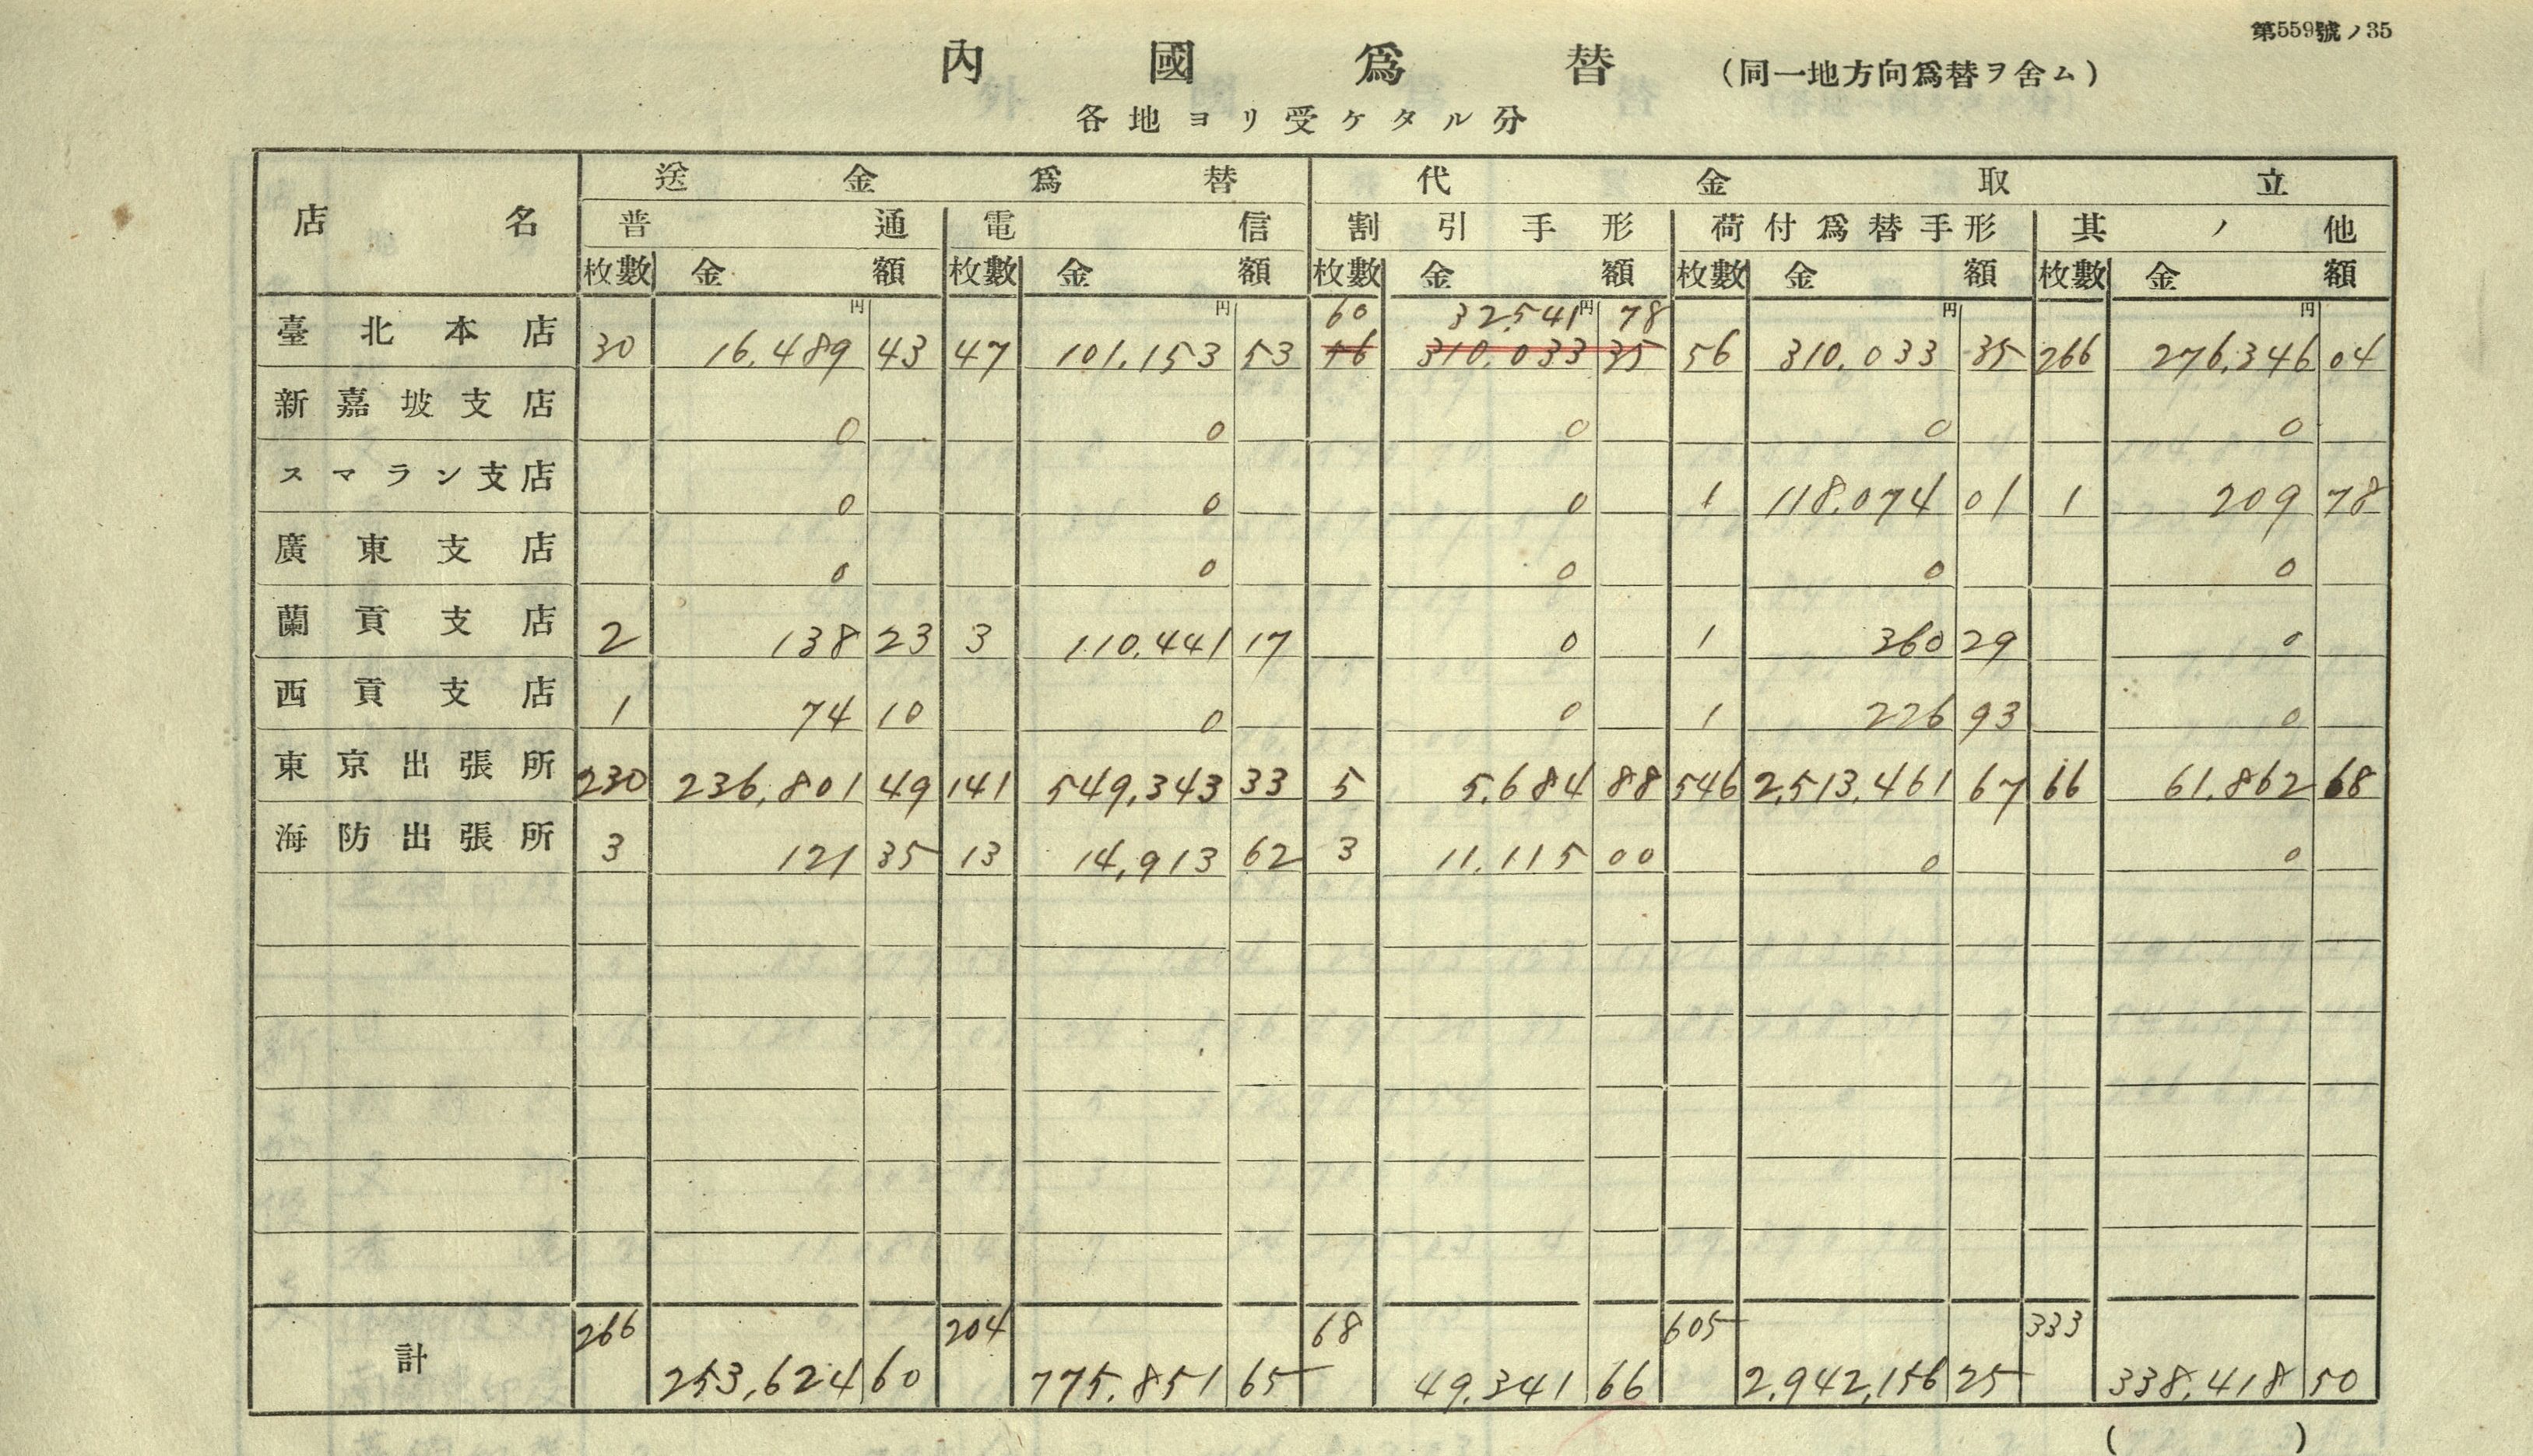 第559號ノ35
內國爲替 (同一地方向爲替ヲ舍ム)
各地ヨリ受ケタル分
店名 送金爲替 代金取立
普通 電信 割引手形 荷付爲替手形 其ノ他
枚數 金額 枚數 金額 枚數 金額 枚數 金額 枚數 金額
円 円 60 32,541 円 78 円 円
臺北本店 30 16,489 43 47 101,153 53 56 310,033 35 56 310,033 35 266 276,346 04
新嘉坡支店 0 0 0 0 0
スマラン支店 0 0 0 1 118,074 01 1 209 78
廣東支店 0 0 0 0 0
蘭貢支店 2 138 23 3 110,441 17 0 1 360 29 0
西貢支店 1 74 10 0 0 1 226 93 0
東京出張所 230 236,801 49 141 549,343 33 5 5,684 88 546 2,513,461 67 66 61,862 68
海防出張所 3 121 35 13 14,913 62 3 11,115 00 0 0
266 204 68 605 333
計 253,624 60 775,851 65 49,341 66 2,942,156 25 338,418 50
( )